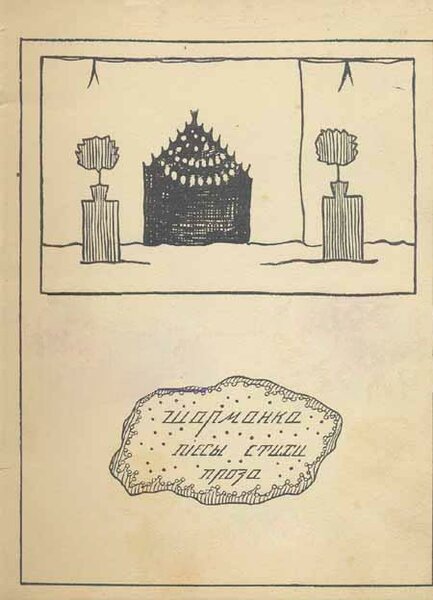 Шарманка
пьесы стихи
проза